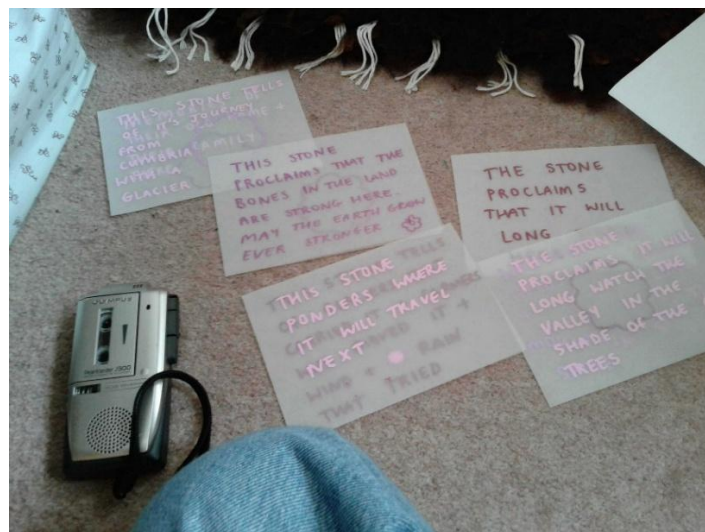 THIS STONE TELLS
OF IT'S JOURNEY
FROM
CUMBRIA
WITH A
GLACIER
FAMILY
THIS STONE
PROCLAIMS THAT THE
BONES IN THE LAND
ARE STRONG HERE.
MAY THE EARTH GROW
EVER STRONGER
THE STONE
PROCLAIMS
THAT IT WILL
LONG
THIS STONE
PONDERS WHERE
IT WILL TRAVEL
NEXT
TELLS
IT +
RAIN
WIND +
THAT TRIED
THE STONE
PROCLAIMS IT WILL
LONG WATCH THE
VALLEY IN THE
SHADE OF THE
TREES
OLYMPUS
Pearlcorder J500